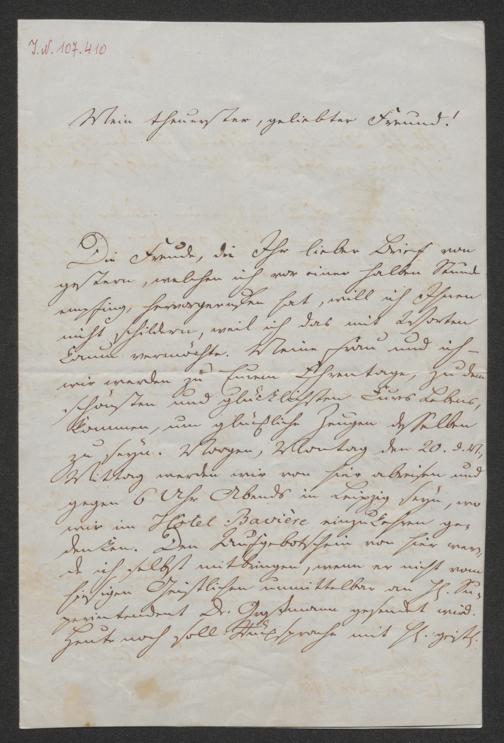 J.N. 107.410
Mein theuerster, geliebter Freund!
Die Freude, die Ihr lieber Brief von
gestern, welchen ich vor einer halben Stunde
empfing, hervorgerufen hat, will ich Ihnen
nicht schildern, weil ich das mit Worten
kaum vermöchte. Meine Frau und ich –
wir werden zu Eurem Ehrentage, zu dem
schönsten und glücklichsten Eures Lebens,
kommen, um glückliche Zeugen desselben
zu seyn. Morgen, Montag den 20. d. M.,
Mittag werden wir von hier abreisen und
gegen 6 Uhr Abends in Leipzig seyn, wo
wir im Hotel Bavière einzukehren ge-
denken. Den Aufgebotschein von hier wer-
de ich selbst mitbringen, wenn er nicht vom
hiesigen Geistlichen unmittelbar an H. Su-
perintendent Dr. Großmann gesendet wird.
Heute noch soll Rücksprache mit H. geistl.